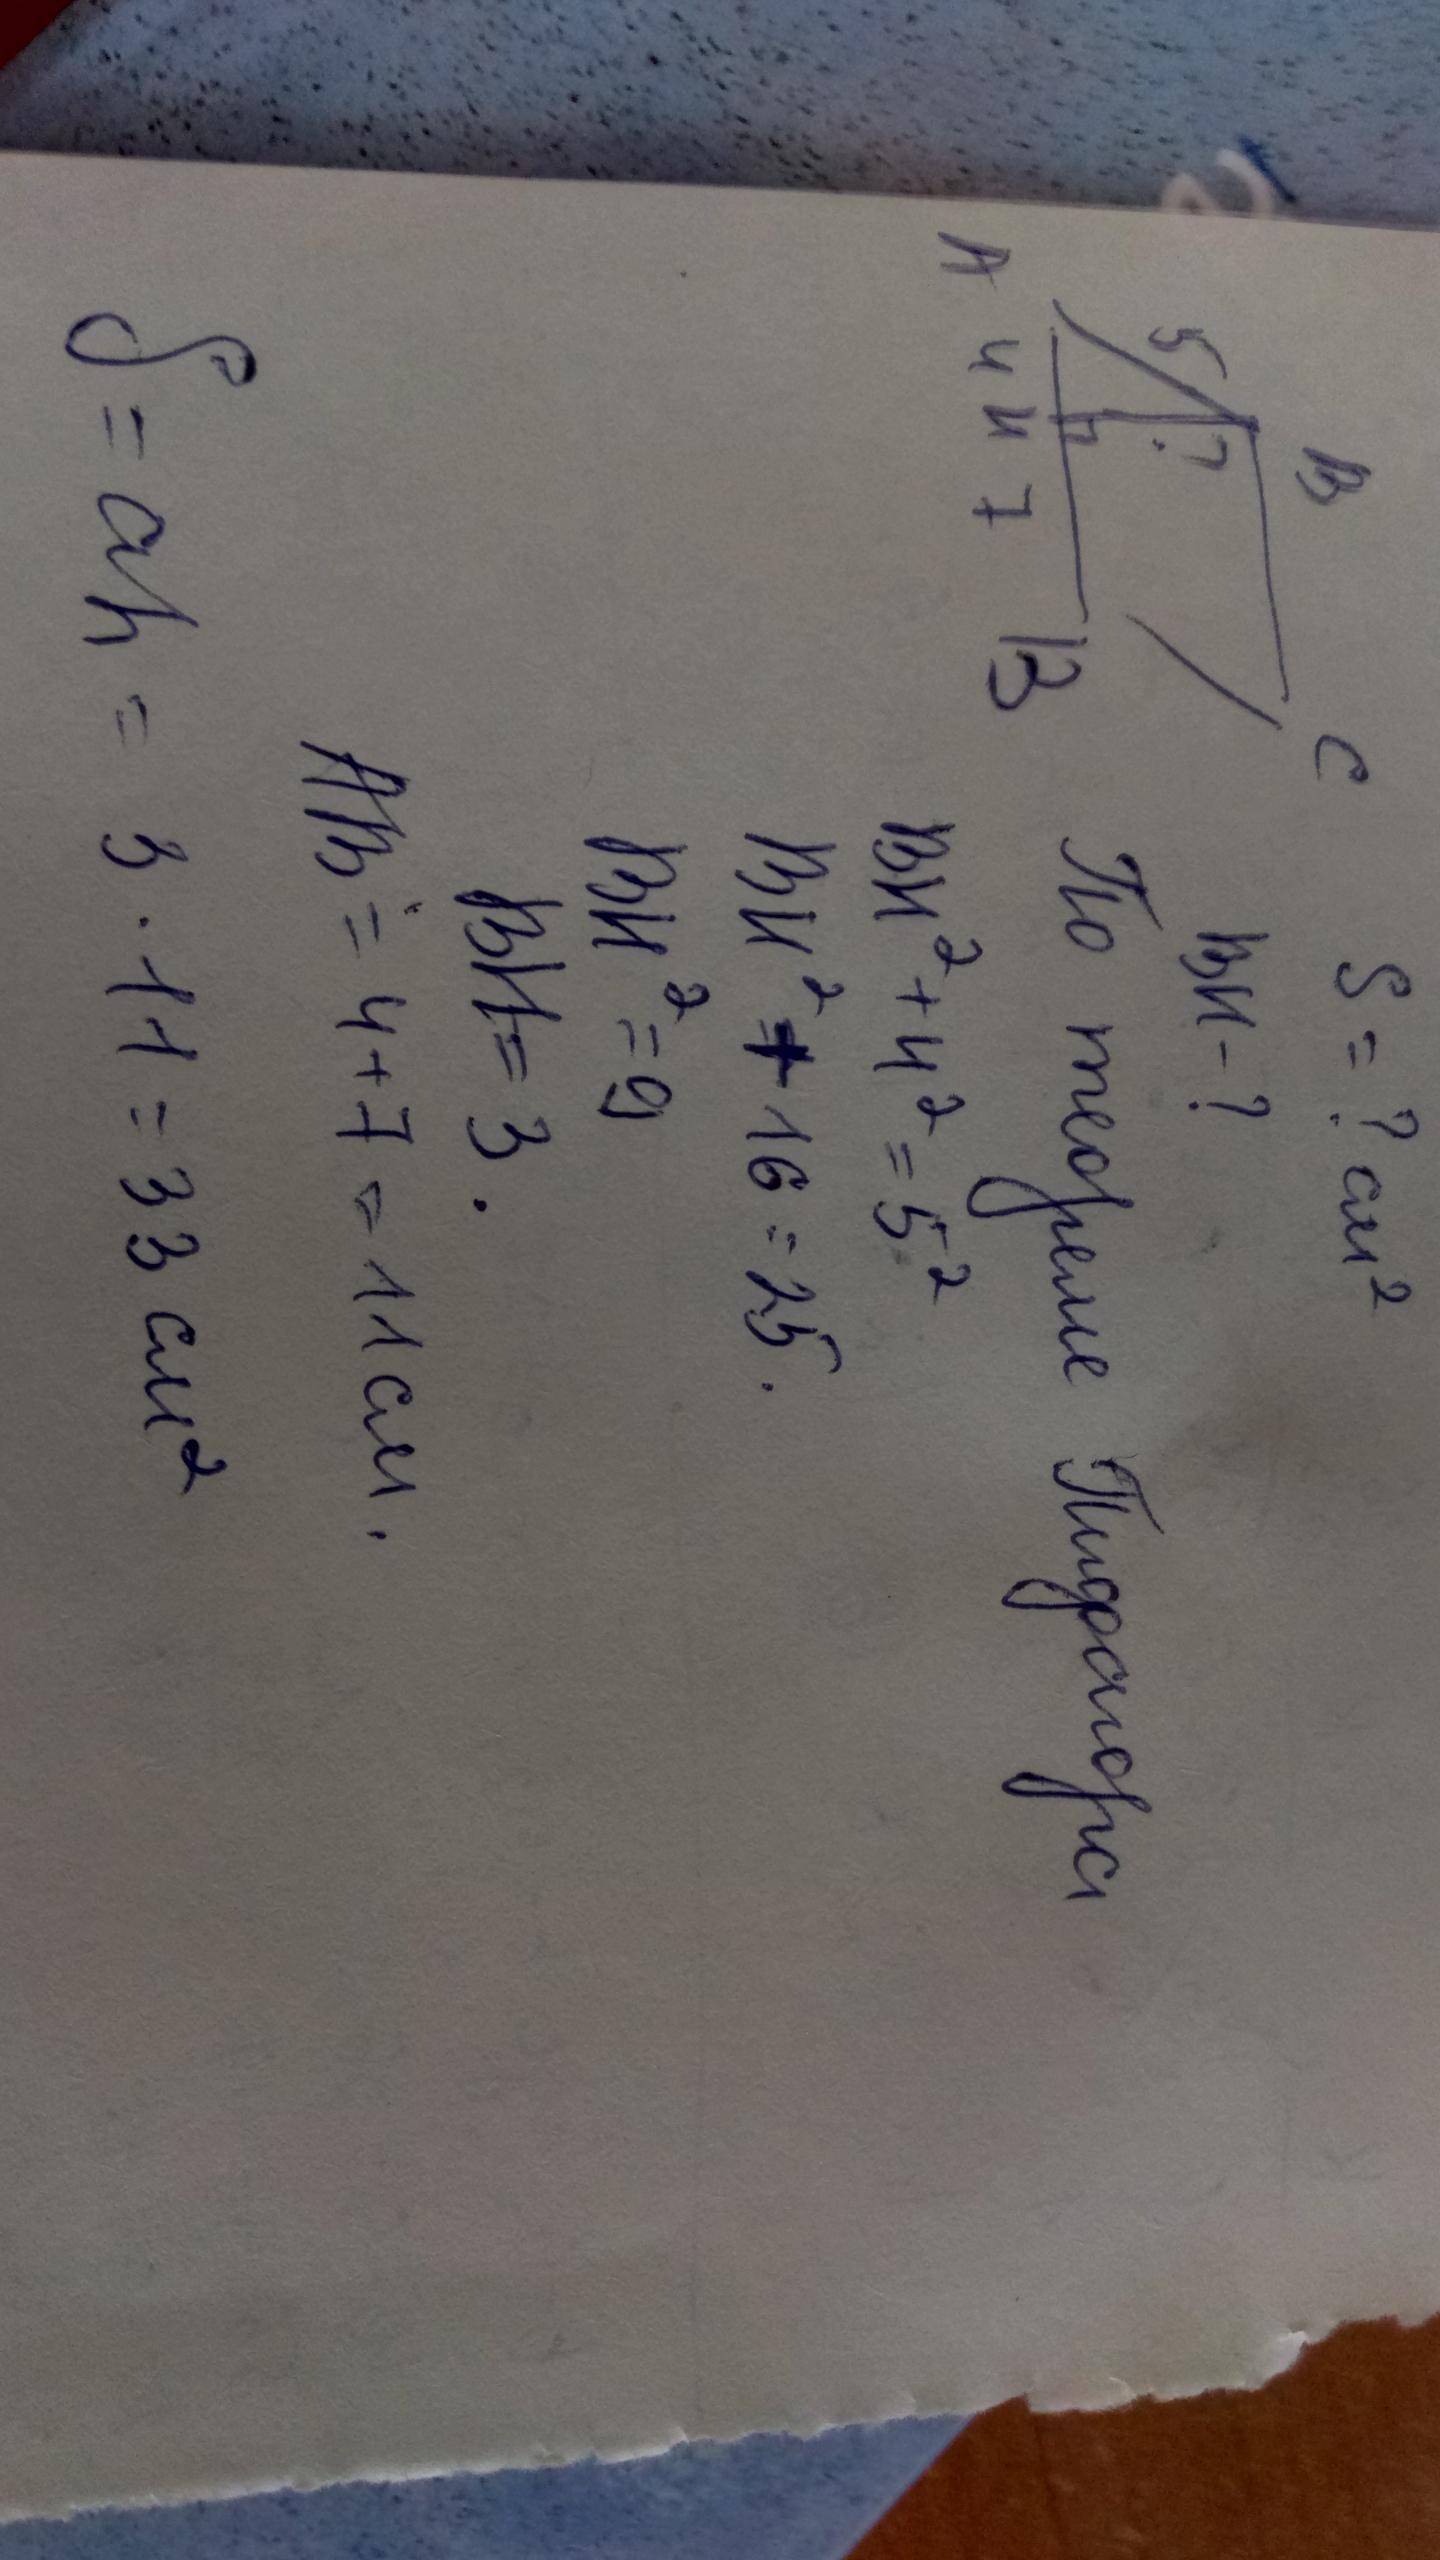 B C
5 ?
A 4 H 7 B
S = ? см²
BH - ?
По теореме Пифагора
BH² + 4² = 5²
BH² + 16 = 25.
BH² = 9
BH = 3.
AB = 4 + 7 = 11 см.
S = ah = 3 · 11 = 33 см²